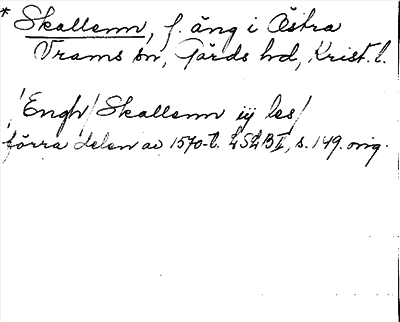 * Skallenn, f. äng i Östra
Vrams sn, Gärds hd, Krist. l.
'Engh/Skallenn iij les/
förra delen av 1570-t. LSLB I, s. 149. orig.